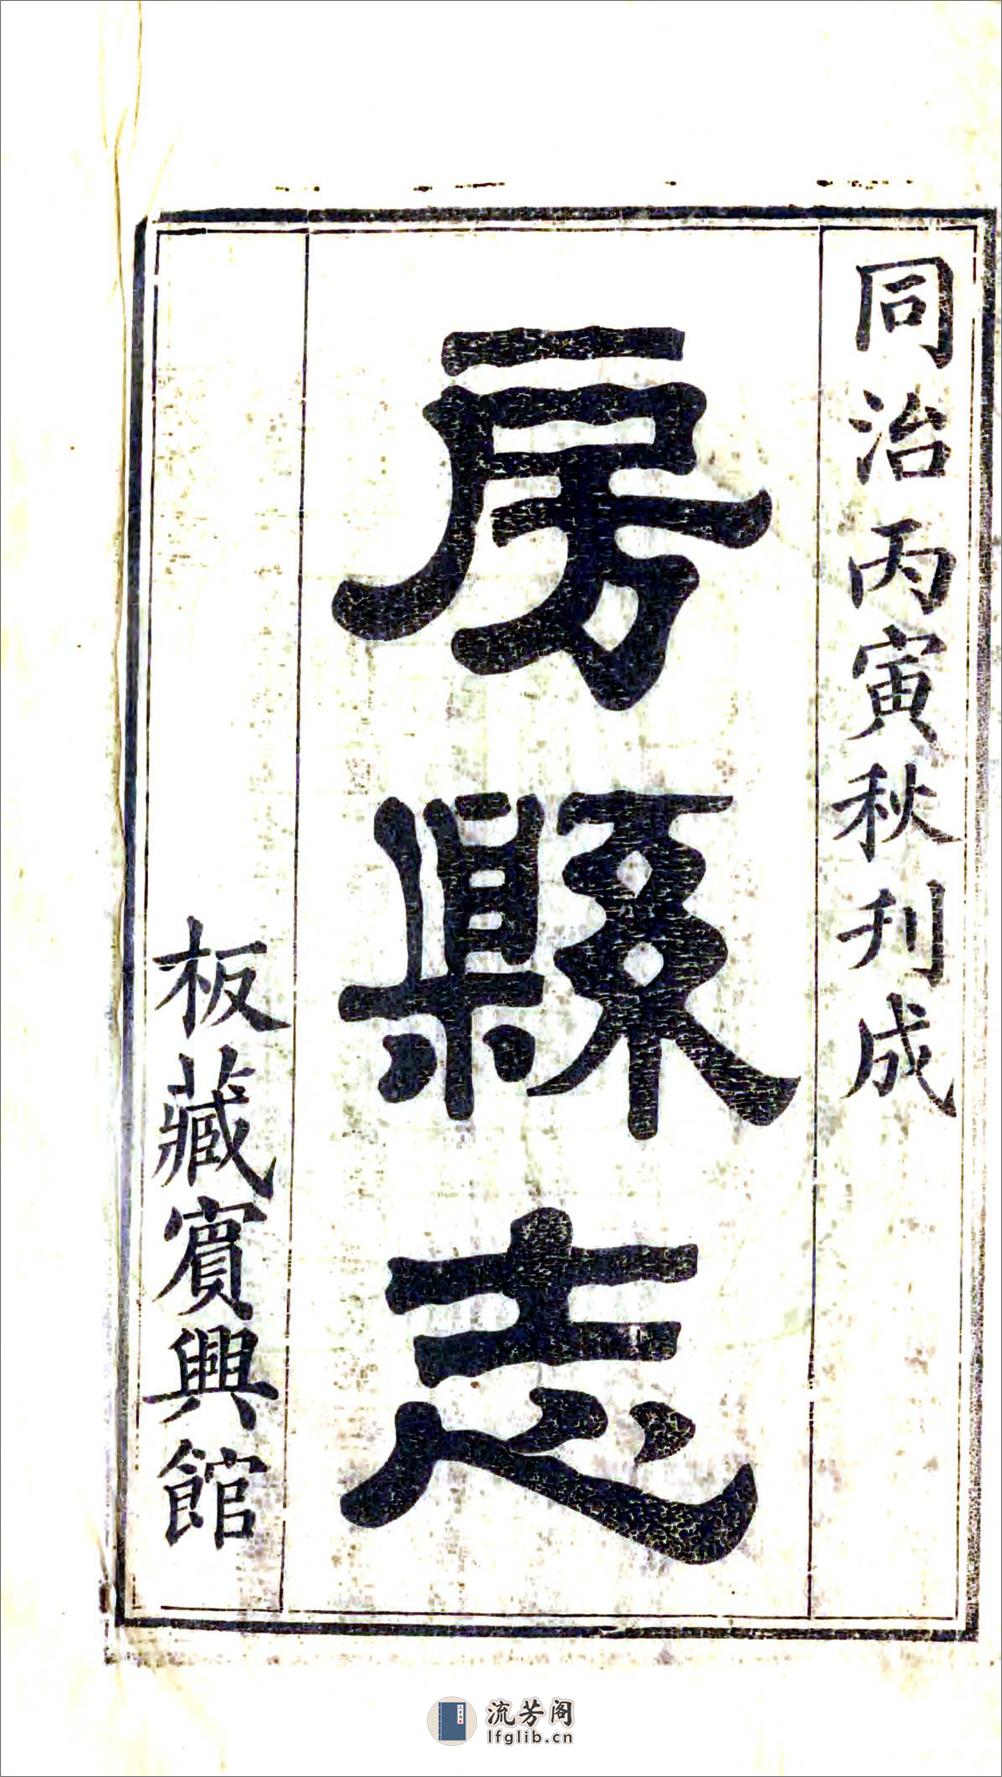 同治丙寅秋刋成
房縣志
板藏賓興館
流芳阁
lfglib.cn